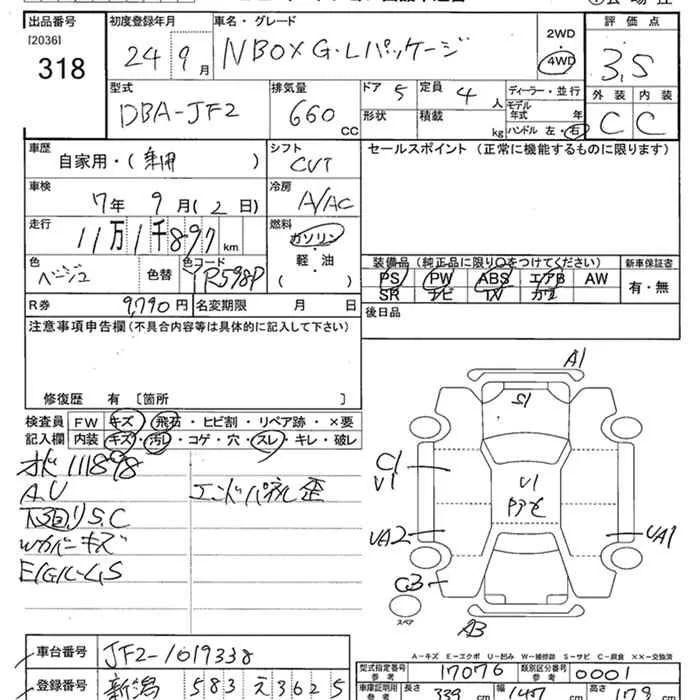 出品番号 初度登録年月 車名・グレード 評価点
[2036]
318
24年 9月
NBOX G・Lパッケージ
2WD
4WD
3.5
型式 排気量 ドア 5 定員 4人 ディーラー・並行 外装 内装
DBA-JF2
660 CC
形状 積載 kg
モデル年式 年
ハンドル 左・右
C C
車歴 シフト セールスポイント (正常に機能するものに限ります)
自家用・( )
CVT
車検 冷房
7年 9月(2日)
A/AC
走行 燃料
11万1千897km
ガソリン
軽・油
( )
色 色替 色コード
ベージュ
YR598P
装備品 (純正品に限り○をつけてください) 新車保証書
PS PW ABS エアB AW
SR ナビ TV カワ
有・無
R券 9,790円 名変期限 月 日
後日品
注意事項申告欄(不具合内容等は具体的に記入して下さい)
修復歴 有 [箇所 ]
検査員記入欄
FW キズ・飛石・ヒビ割・リペア跡・×要
内装 キズ・汚レ・コゲ・穴・スレ・キレ・破レ
111898
A.U
エンドパネル歪
下回りS.C
Wカバーキズ
A1
S1
C1
V1
U1
UA2
UA1
C3
A3
スペア
A-キズ E-エクボ U-凹み W-補修跡 S-サビ C-腐食 ××-交換済
車台番号 JF2-1019338
登録番号 新潟 583 え 3625
型式指定番号 参考 17076 類別区分番号 参考 0001
車庫証明用 参考 長さ 339 cm 幅 147 cm 高さ cm